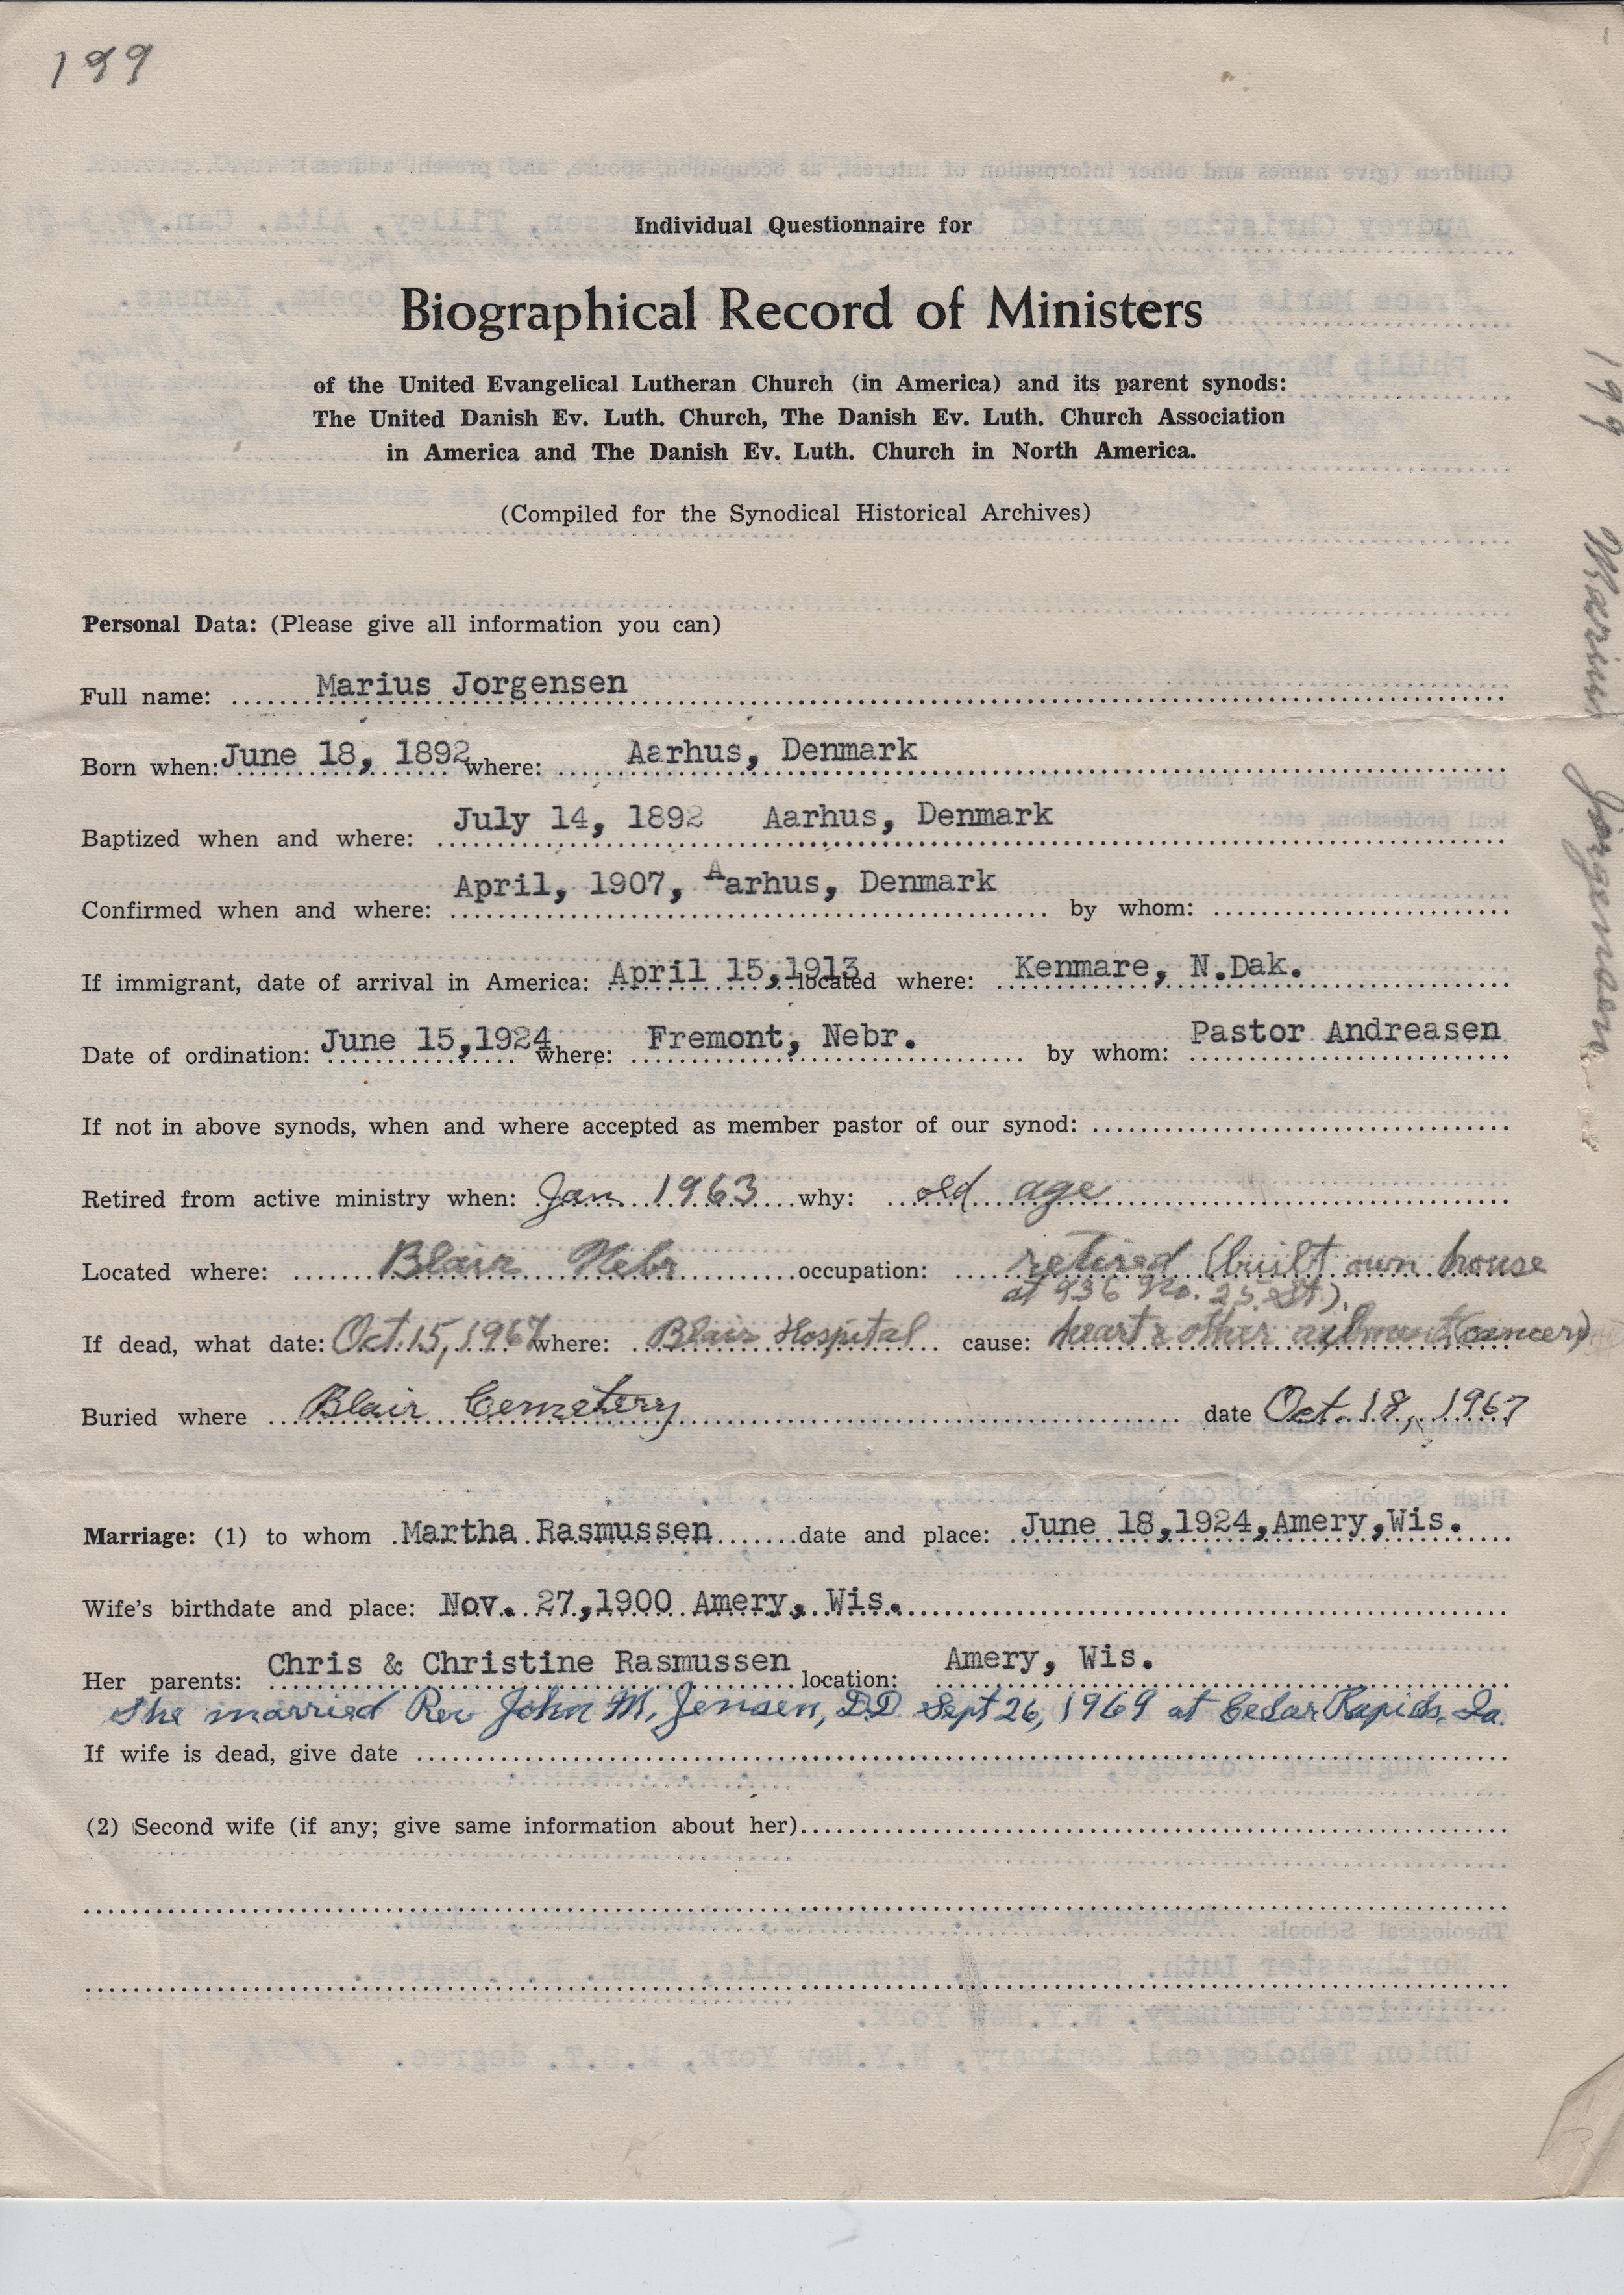 199
Individual Questionnaire for
Biographical Record of Ministers
of the United Evangelical Lutheran Church (in America) and its parent synods:
The United Danish Ev. Luth. Church, The Danish Ev. Luth. Church Association
in America and The Danish Ev. Luth. Church in North America.
(Compiled for the Synodical Historical Archives)
Personal Data: (Please give all information you can)
Full name: Marius Jorgensen
Born when: June 18, 1892 where: Aarhus, Denmark
Baptized when and where: July 14, 1892 Aarhus, Denmark
Confirmed when and where: April, 1907, Aarhus, Denmark by whom:
If immigrant, date of arrival in America: April 15,1913 located where: Kenmare, N.Dak.
Date of ordination: June 15,1924 where: Fremont, Nebr. by whom: Pastor Andreasen
If not in above synods, when and where accepted as member pastor of our synod:
Retired from active ministry when: Jan 1963 why: old age
Located where: Blair Nebr occupation: retired (built own house
at 936 No. 25 St).
If dead, what date: Oct. 15, 1967 where: Blair Hospital cause: heart & other ailments (cancer)
Buried where Blair Cemetery date Oct. 18, 1967
Marriage: (1) to whom Martha Rasmussen date and place: June 18,1924,Amery,Wis.
Wife's birthdate and place: Nov. 27,1900 Amery, Wis.
Her parents: Chris & Christine Rasmussen location: Amery, Wis.
She married Rev John M. Jensen, D.D. Sept 26, 1969 at Cedar Rapids, Ia.
If wife is dead, give date
(2) Second wife (if any; give same information about her)
199 Marius Jorgensen